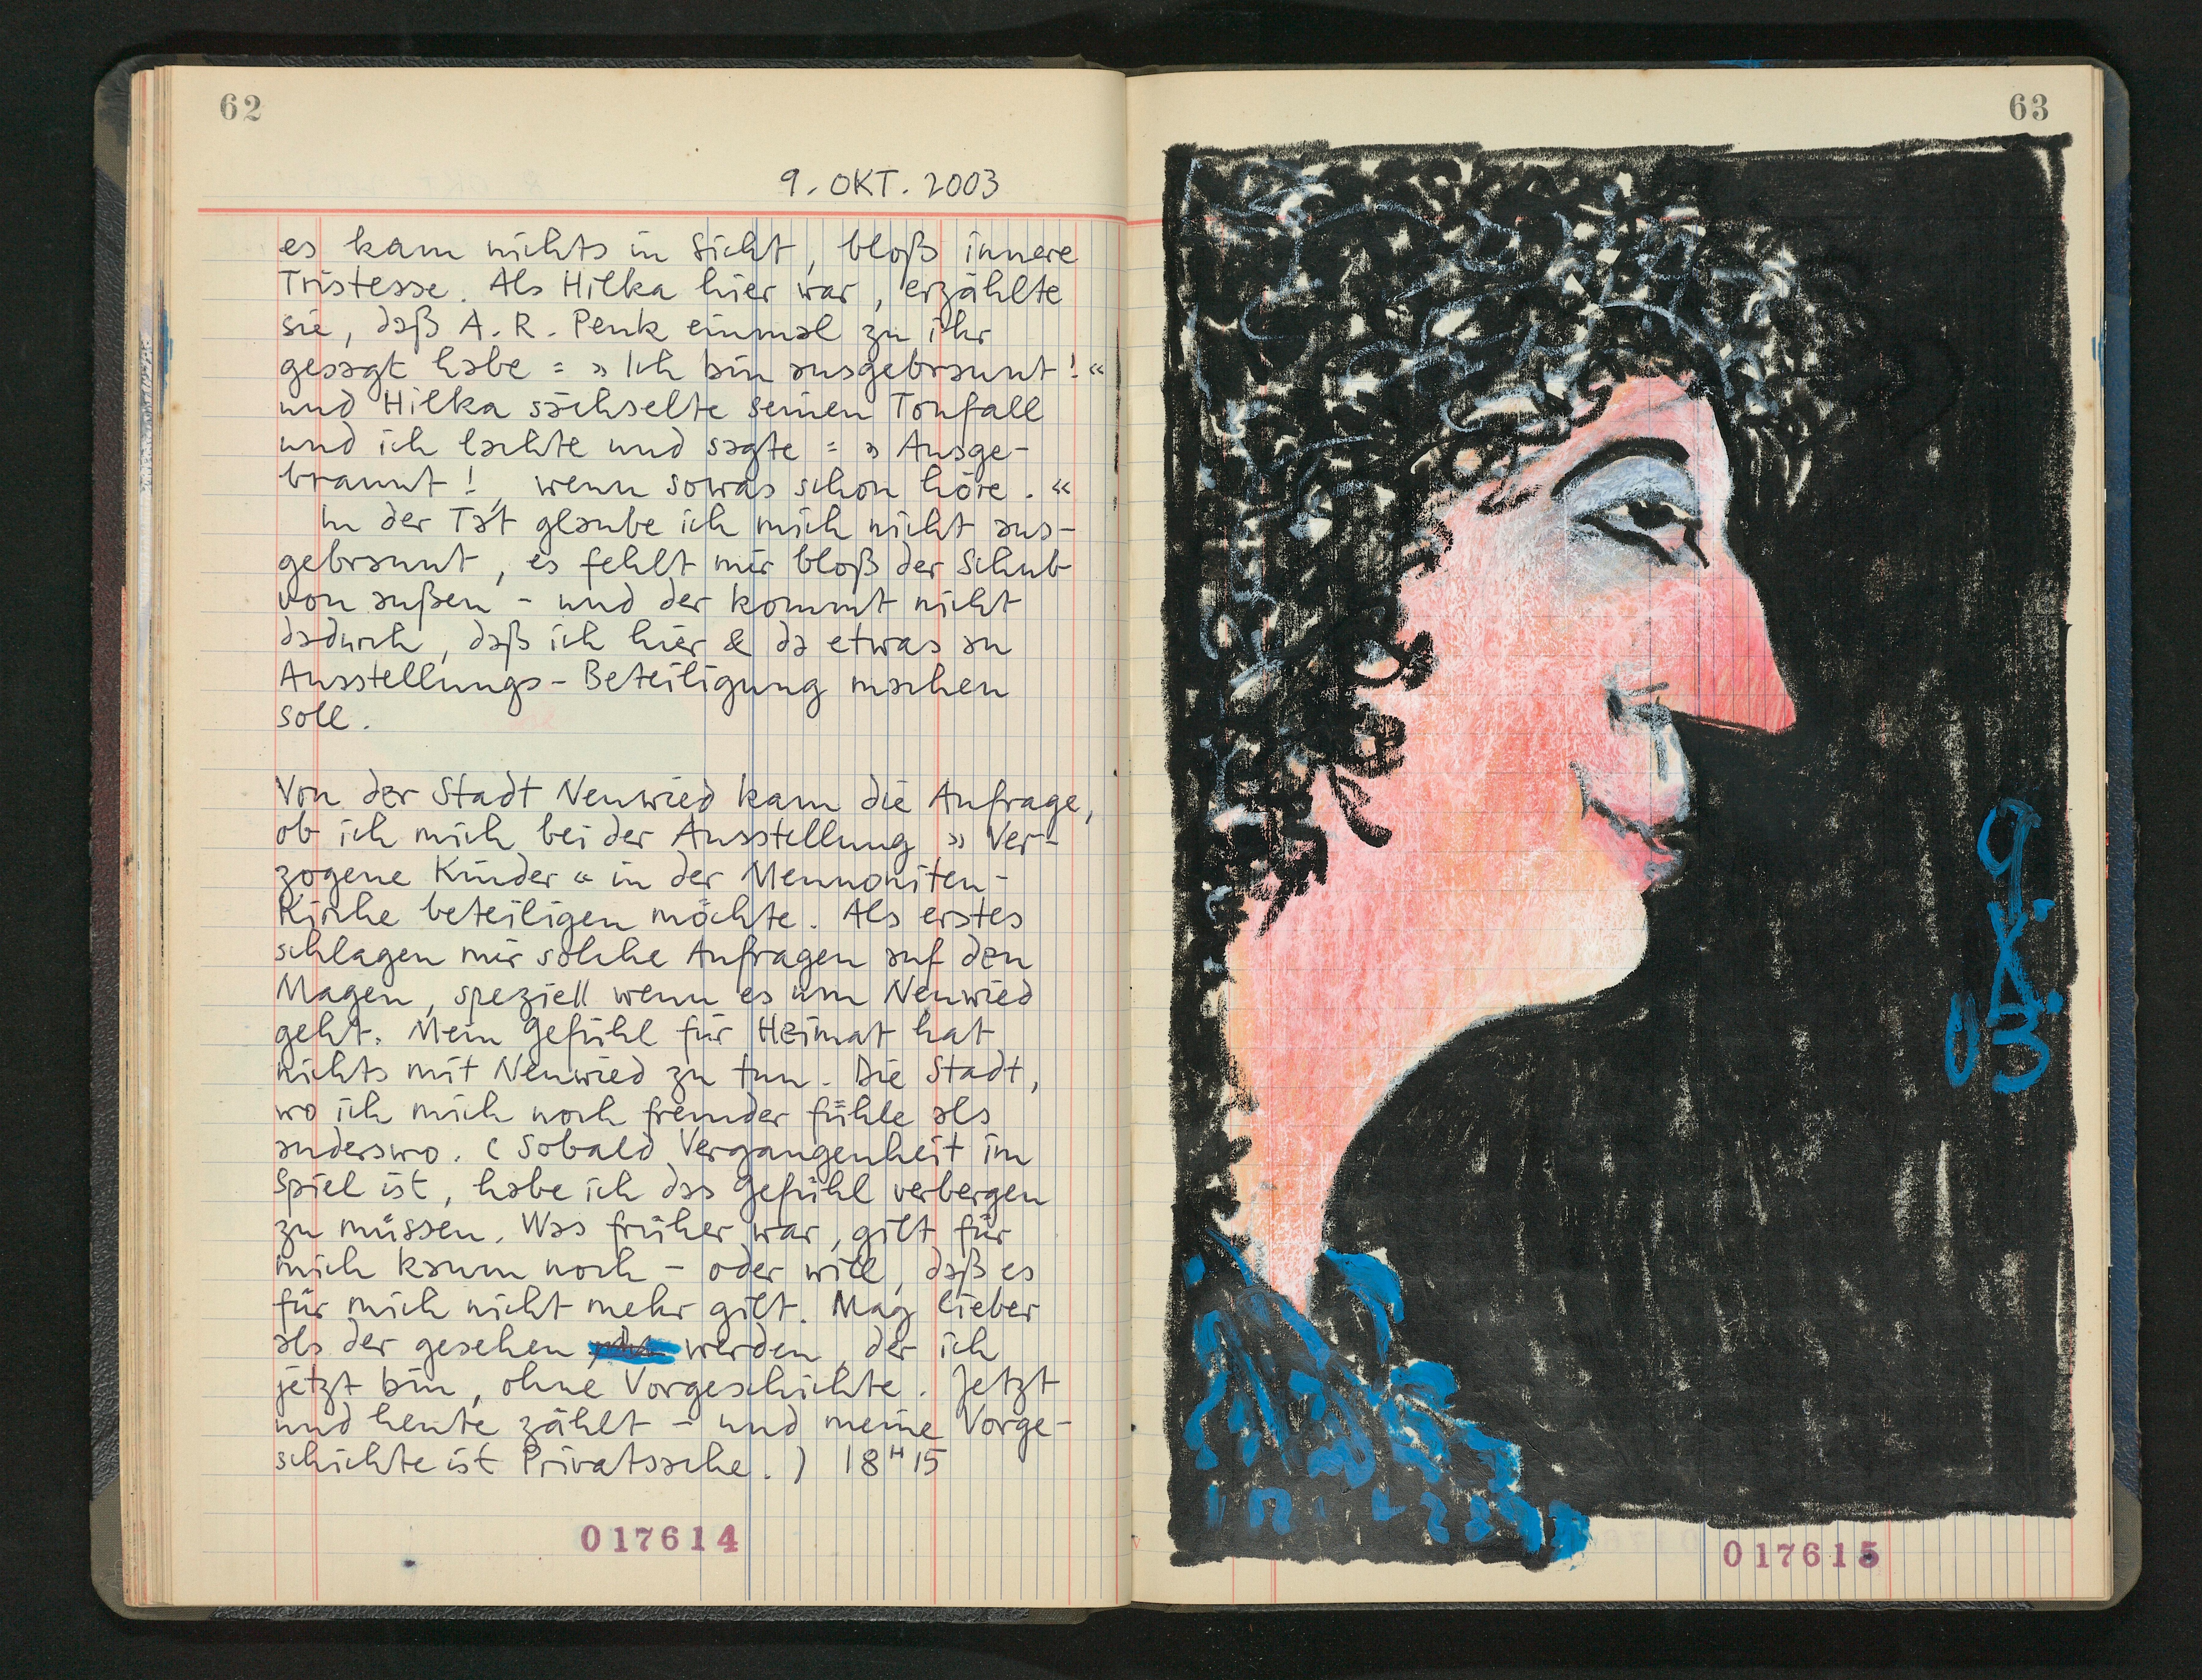 62
9. OKT. 2003
es kam nichts in Sicht, bloß innere
Tristesse. Als Hilka hier war, erzählte
sie, daß A. R. Penk einmal zu ihr
gesagt habe = » Ich bin ausgebrannt! «
und Hilka sächselte seinen Tonfall
und ich lachte und sagte = » Ausge-
brannt!, wenn sowas schon höre. «
In der Tat glaube ich mich nicht aus-
gebrannt, es fehlt mir bloß der Schub
von außen - und der kommt nicht
dadurch, daß ich hier & da etwas an
Ausstellungs-Beteiligung machen
soll.
Von der Stadt Neuwied kam die Anfrage,
ob ich mich bei der Ausstellung » Ver-
zogene Kinder « in der Mennoniten-
Kirche beteiligen möchte. Als erstes
schlagen mir solche Anfragen auf den
Magen, speziell wenn es um Neuwied
geht. Mein Gefühl für Heimat hat
nichts mit Neuwied zu tun. Die Stadt,
wo ich mich noch fremder fühle als
anderswo. (Sobald Vergangenheit im
Spiel ist, habe ich das Gefühl verbergen
zu müssen. Was früher war, gilt für
mich kaum noch - oder will, daß es
für mich nicht mehr gilt. Mag lieber
als der gesehen werden, der ich
jetzt bin, ohne Vorgeschichte. Jetzt
und heute zählt - und meine Vorge-
schichte ist Privatsache.) 18 H 15
017614
63
9.
X.
03
017615